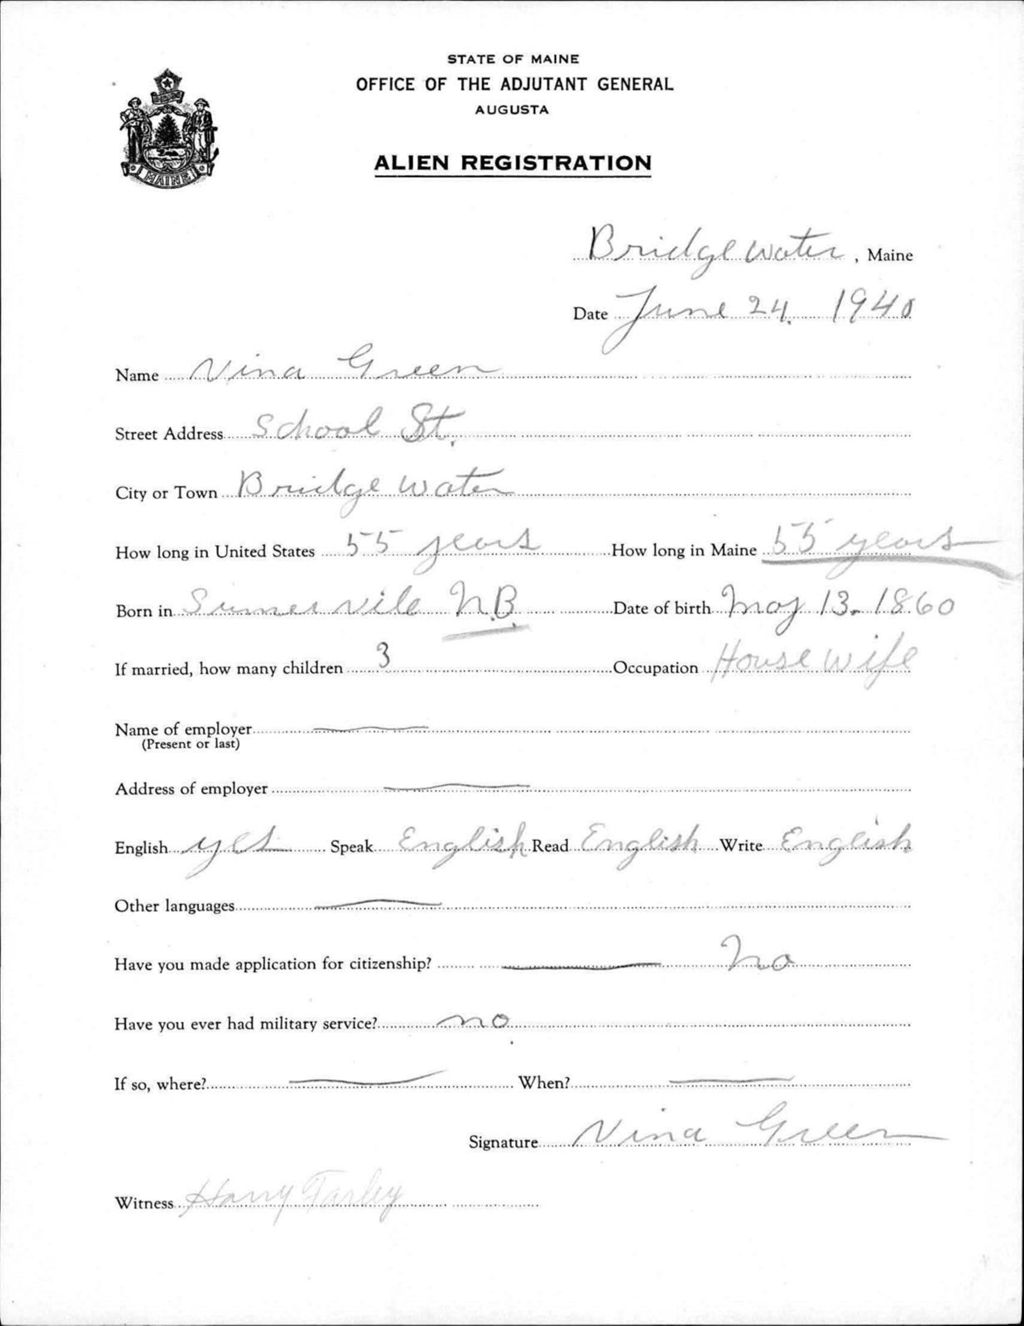 STATE OF MAINE
OFFICE OF THE ADJUTANT GENERAL
AUGUSTA
MAINE
ALIEN REGISTRATION
Bridgewater, Maine
Date June 24, 1940
Name Vina Green
Street Address School St.
City or Town Bridgewater
How long in United States 55 years How long in Maine 55 years
Born in N.B. Date of birth May 13. 1860
If married, how many children 3 Occupation House wife
Name of employer
(Present or last)
Address of employer
English yes Speak English Read English Write English
Other languages
Have you made application for citizenship? No
Have you ever had military service? no
If so, where? When?
Signature Vina Green
Witness Harry